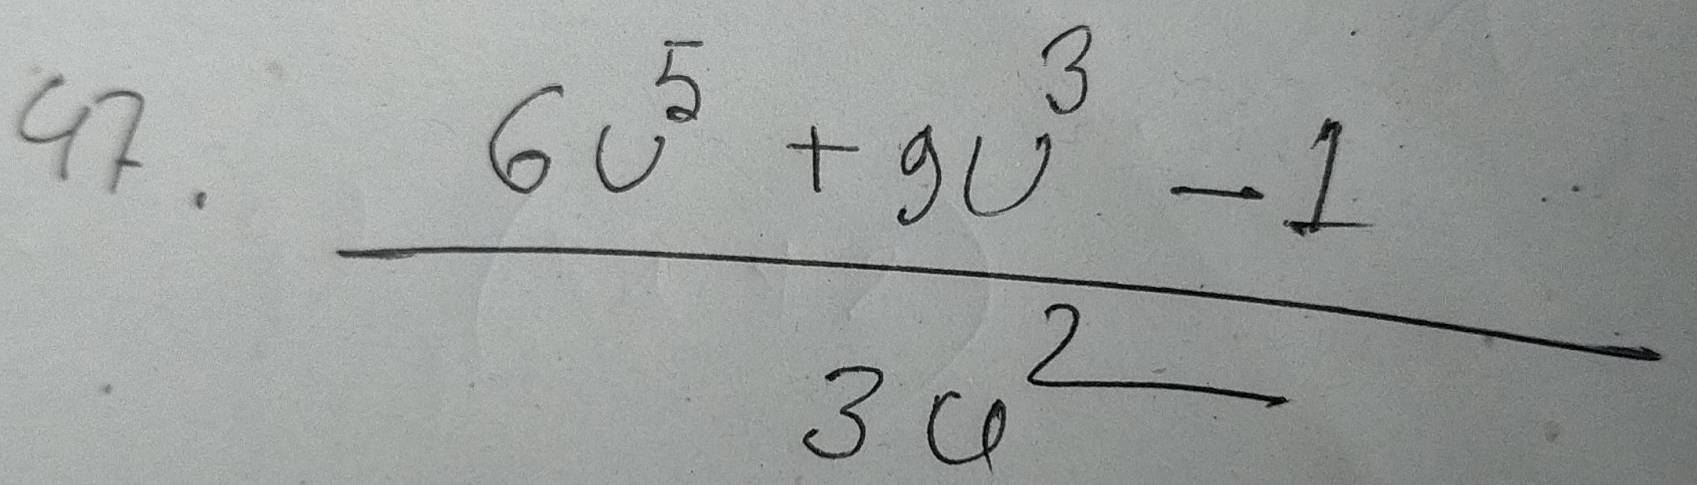 47. 6u⁵ + 9u³ - 1
3u²